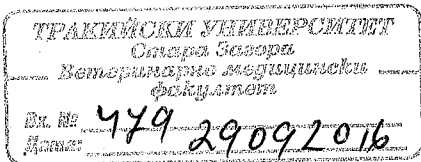 ТРАКИЙСКИ УНИВЕРСИТЕТ
Стара Загора
Ветеринарно медицински
факултет
Вх. № 479
Дата: 29092016